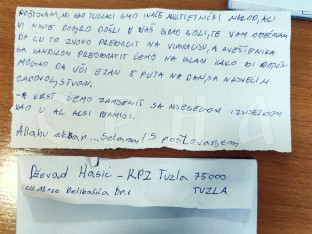 POŠTOVANI, MI KAO TUZLACI SMO INAČE MULTIETNIČKI NAROD, ALI
VI NISTE DOBRO DOŠLI U NAŠ GRAD GOLITE, VAM OBEĆAVAM
DA ĆU TO ZVONO PREBACIT NA VIBRACIJU, A SVEŠTENIKA
GA
PREOBRATIT ĆEMO NA ISLAM KAKO BI
MOGAO DA UČI EZAN 5 PUTA NA DAN, SA NAJVEĆIM
ZADOVOLJSTVOM.
- A KRST ĆEMO ZAMJENIT SA MJESECOM I ZVJEZDOM
KAO U AL
Allahu akbar... Selam! S poštovanjem
Dževad Hasić - KPZ Tuzla 75000
Ul. Mirze Delibašića Br. 1 TUZLA